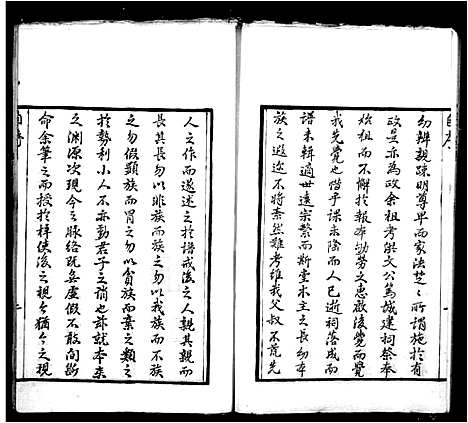 勿辨親疎明尊卑而家法楚楚所謂施於有
政是亦為政余祖考洪文公篤城建祠祭奉
始祖而不懈於報本勤勞之惠歟後覺而覺
我先覺也惜乎課未隆而人已逝祠落成而
譜未輯適世遠宗繁而斯堂木主之長幼本
族之遐迩不將柰然難考維我父叔不荒先
人之作而遂述之於譜戒後之人親其親而
長其長勿以非族而我族勿以我族而不族
之勿假顯族而冐之勿以貧族而棄之類之
於勢利小人不亦勤君子之誚也哉就本來
之淵源次現今之脉絡既無虛假不敢間斷
命余筆之而授於梓使後之視今猶今之視